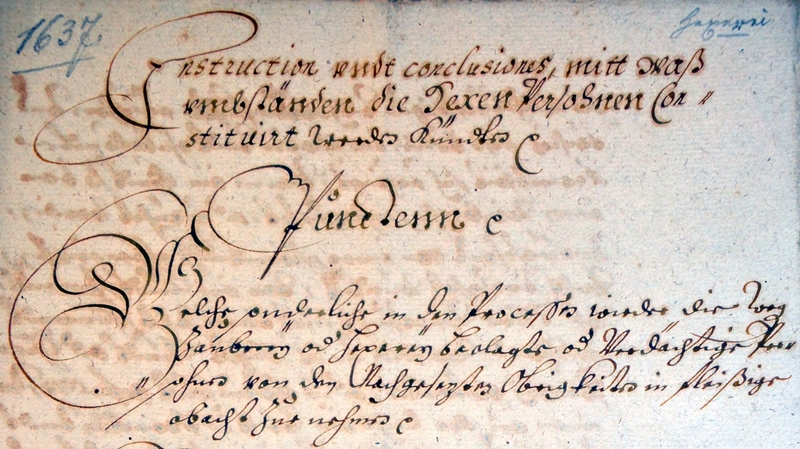 1637.
Hexerei
Instruction vndt conclusiones, mitt waß
vmbständen die Hexen Persohnen Con〃
stituirt werden Köndten
Puncten
Welche sonderliche in den Processen wieder die weg
Zauberey od Hexerey beclagte od Verdächtige Per
〃sohnen von den Nachgesezten Obrigkeiten in fleißige
obacht Zue nehmen